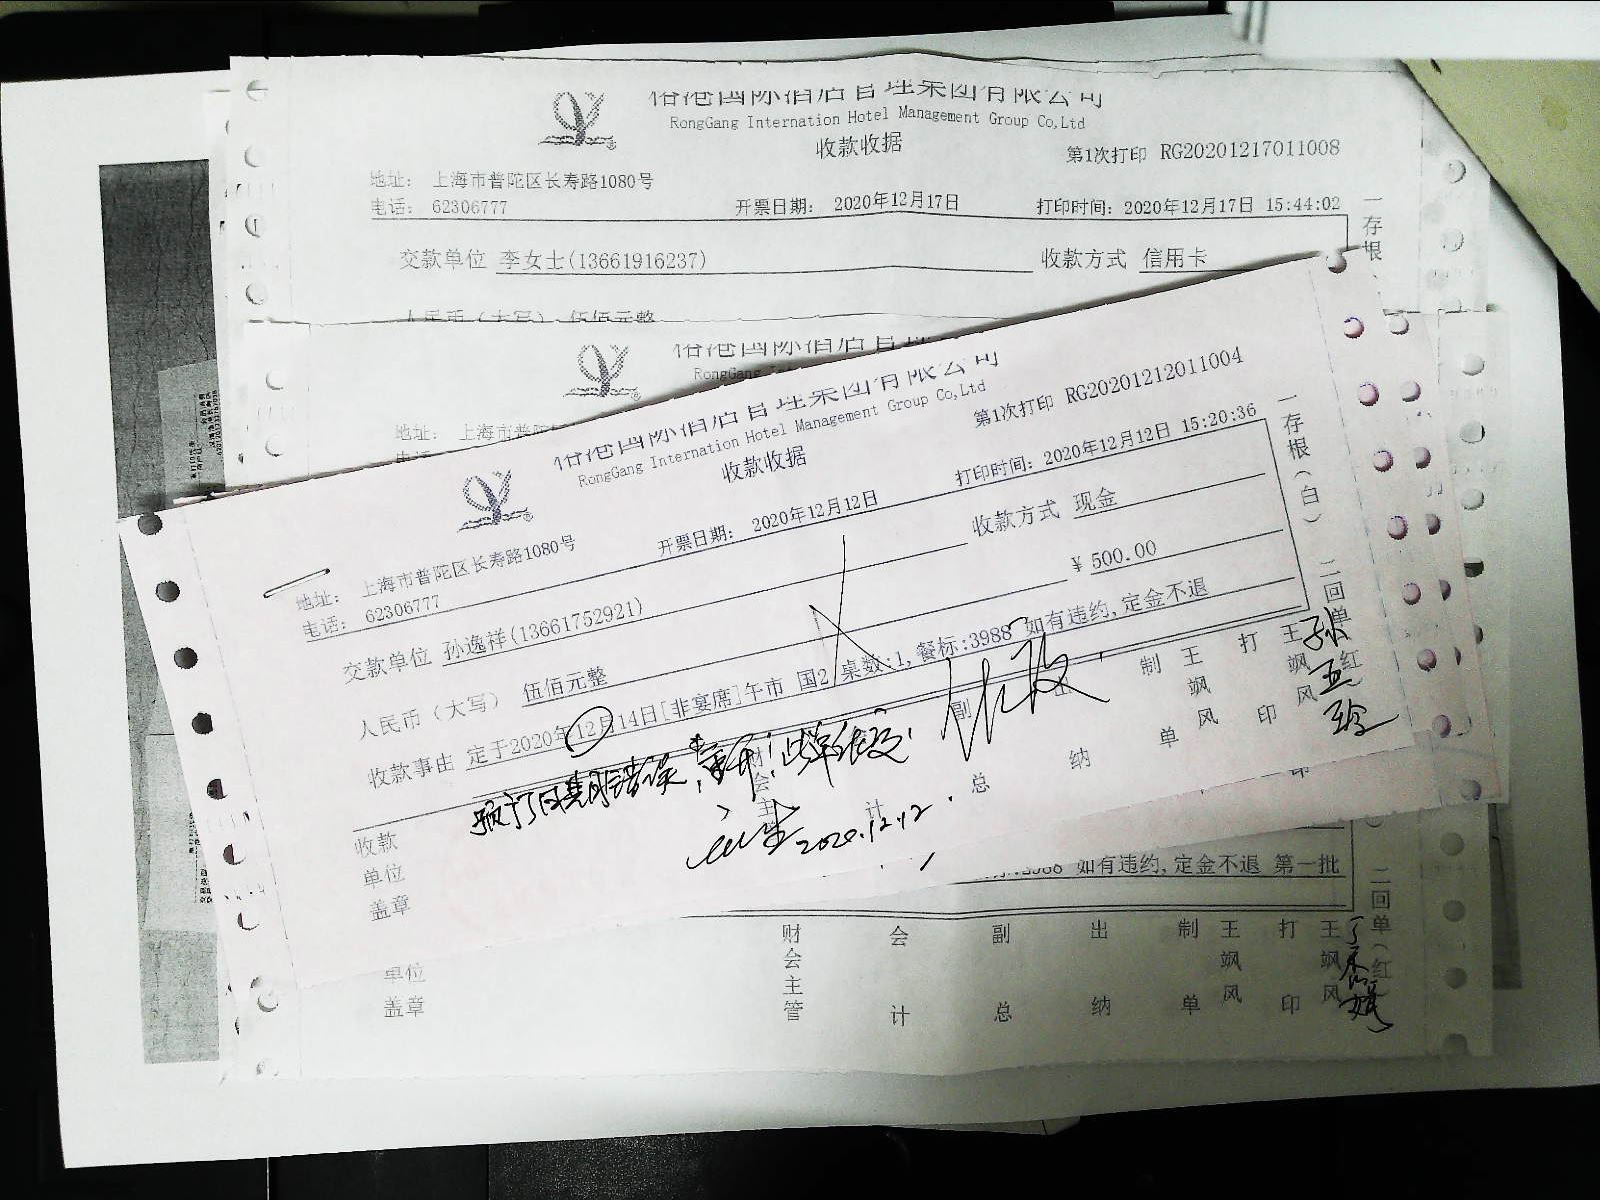 裕港国际酒店管理集团有限公司
RongGang Internation Hotel Management Group Co,Ltd
收款收据
第1次打印 RG20201217011008
地址: 上海市普陀区长寿路1080号
电话: 62306777
开票日期: 2020年12月17日
打印时间: 2020年12月17日 15:44:02
交款单位 李女士(13661916237)
收款方式 信用卡
人民币(大写) 伍佰元整
一存根
裕港国际酒店管理
RongGang
地址: 上海市普陀
裕港国际酒店管理集团有限公司
RongGang Internation Hotel Management Group Co,Ltd
收款收据
第1次打印 RG20201212011004
地址: 上海市普陀区长寿路1080号
电话: 62306777
开票日期: 2020年12月12日
打印时间: 2020年12月12日 15:20:36
交款单位 孙逸祥(13661752921)
收款方式 现金
人民币(大写) 伍佰元整
¥ 500.00
收款事由 定于2020年12月14日[非宴席]午市 国2 桌数:1,餐标:3988 如有违约,定金不退
预订日期错误,重开!此单作废!
作废
2020.12.12
收款单位盖章
财会主管
会计
副总
出纳
制单 王飒风
打印 王飒风
一存根(白) 二回单(红)
如有违约,定金不退 第一批
单位
盖章
财会主管
会计
副总
出纳
制单 王飒风
打印 王飒风
二回单(红)